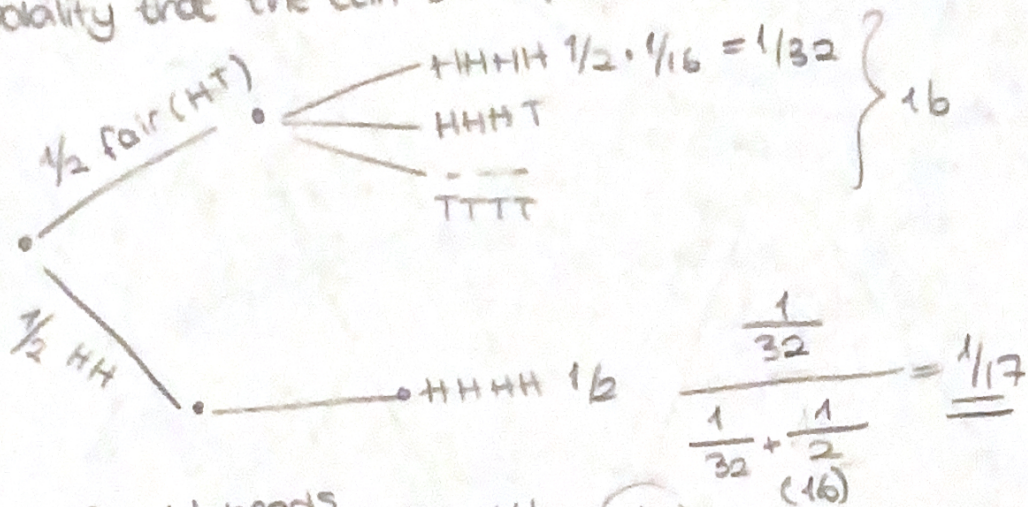 that the
1/2 fair (HT)
HHHH 1/2 · 1/16 = 1/32
HHHT
} 16
- - - -
TTTT
1/2 HH
HHHH 1/2
1/32 / (1/32 + 1/2) = 1/17
(16)